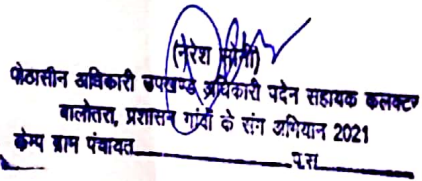 (नरेश सोनी)
पीठासीन अधिकारी उपखण्ड अधिकारी पदेन सहायक कलक्टर
बालोतरा, प्रशासन गांवों के संग अभियान 2021
केम्प ग्राम पंचायत__________प.स.__________